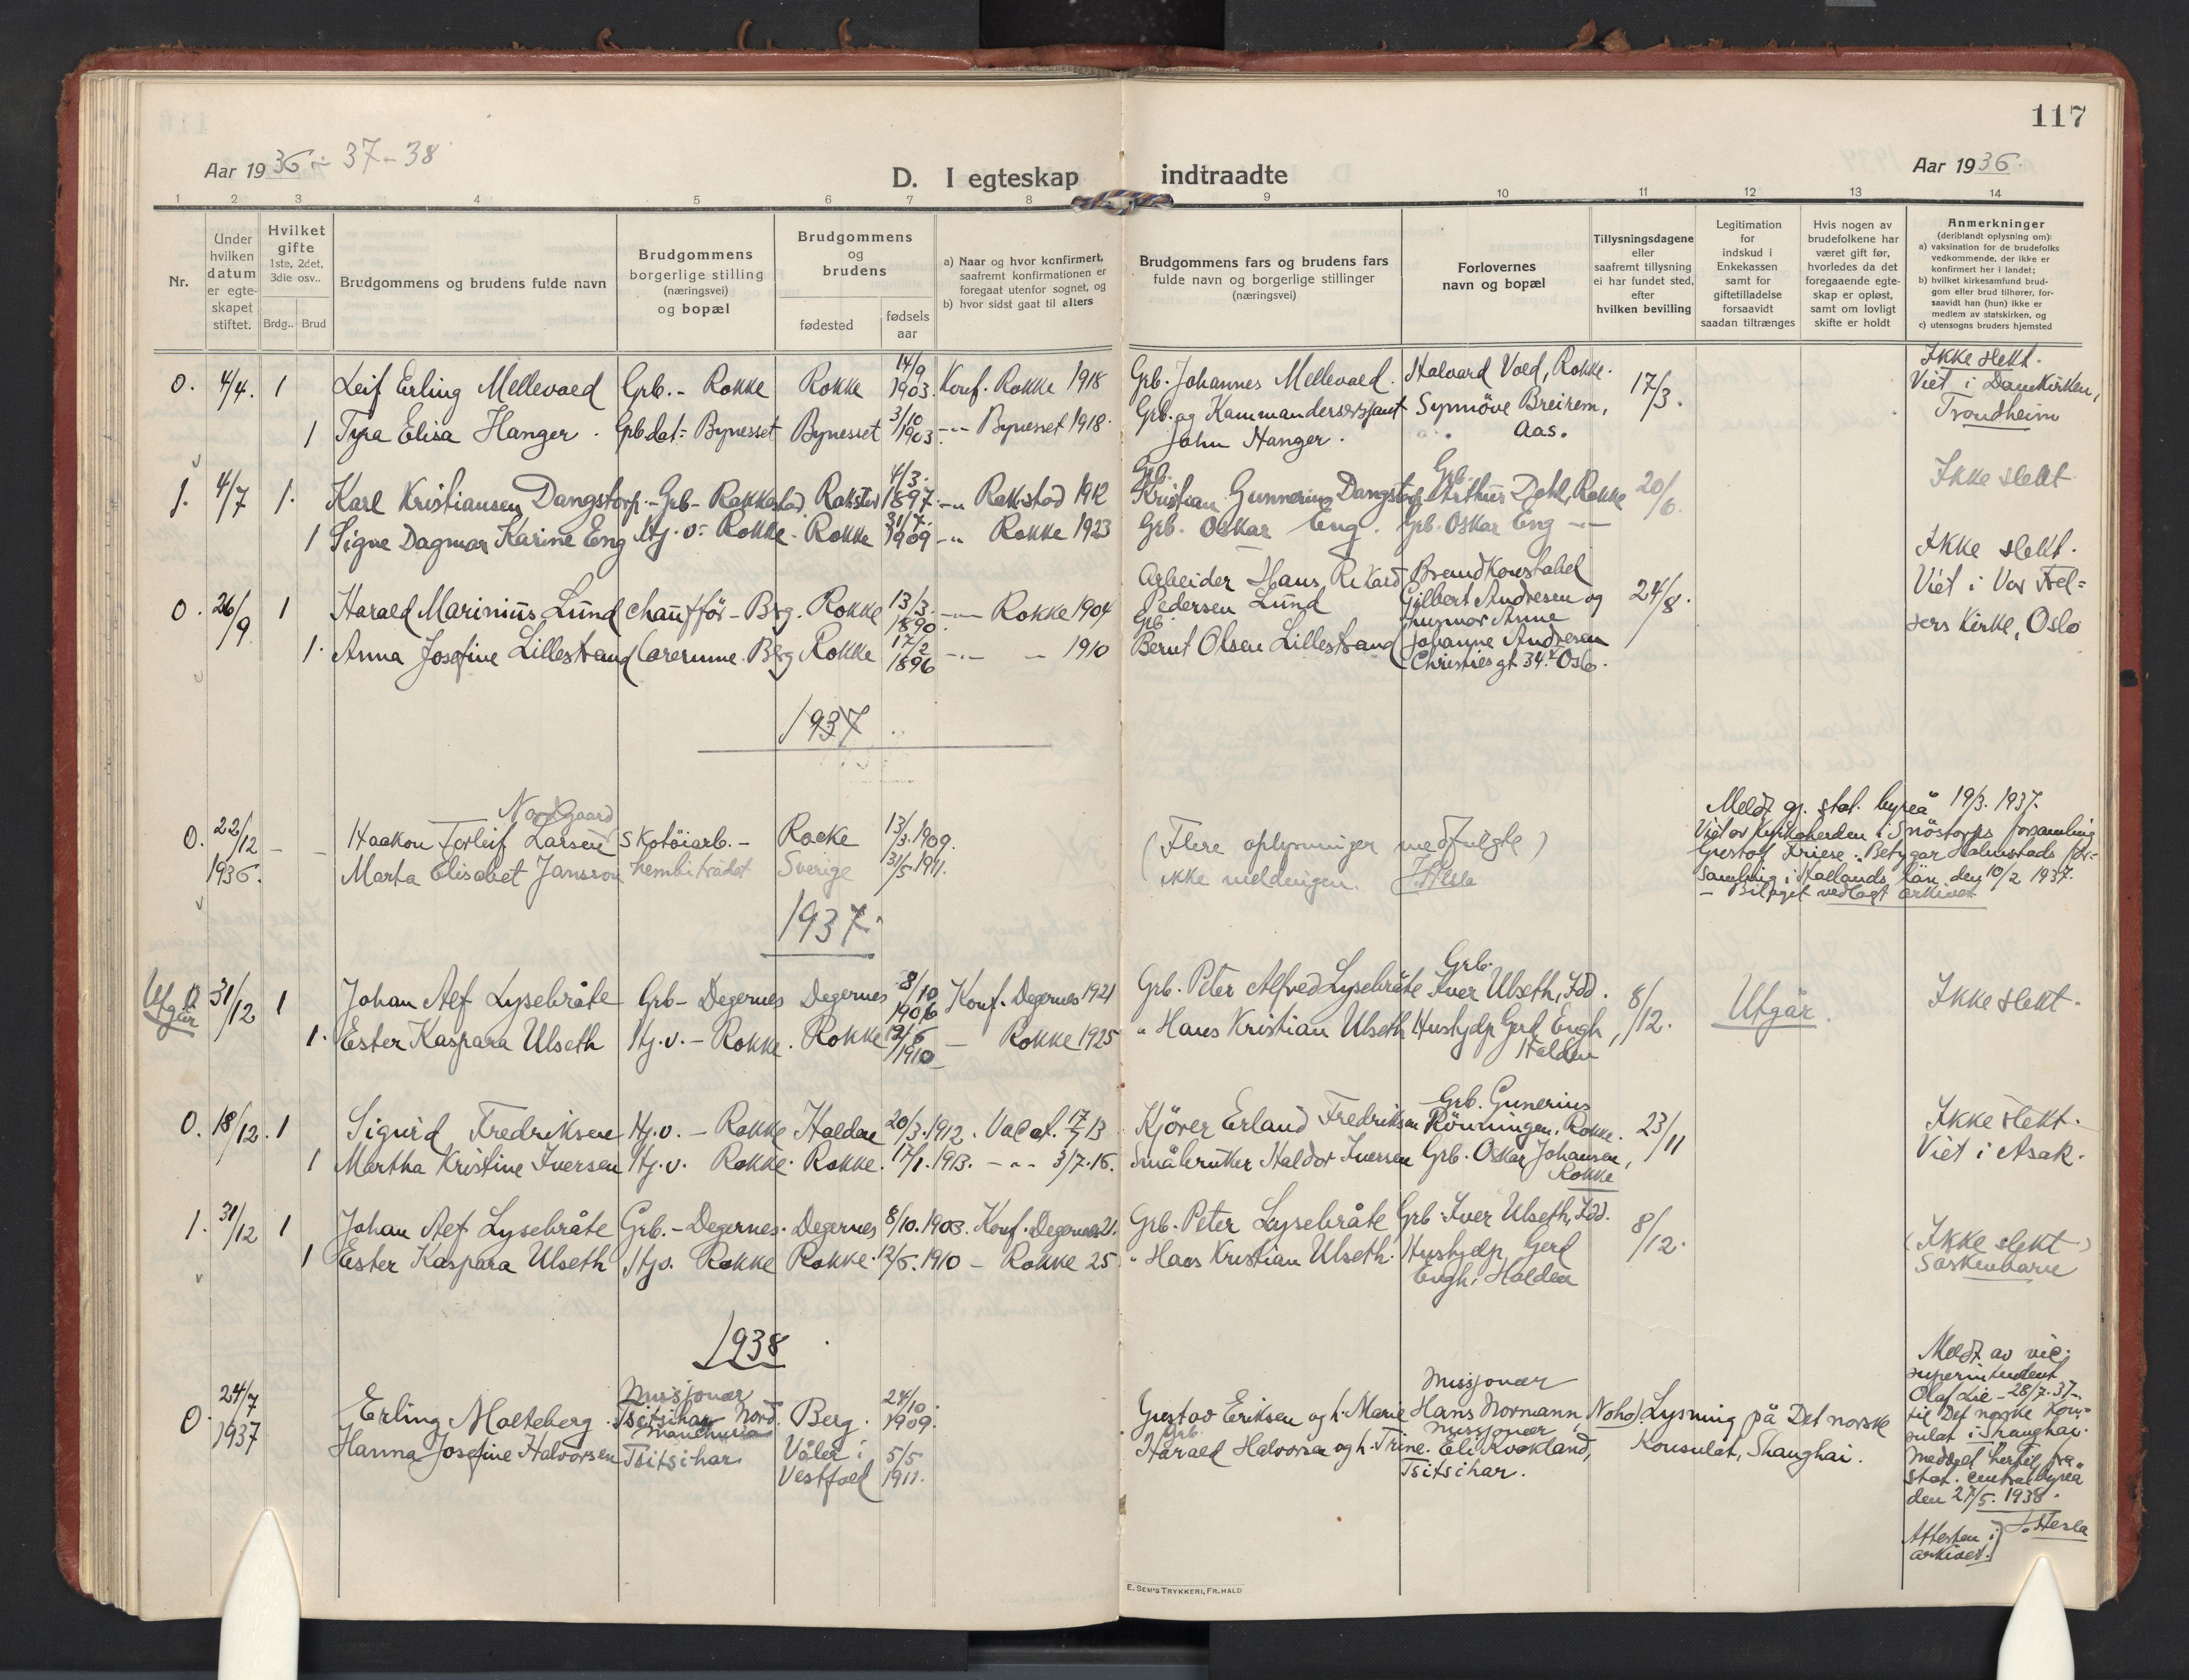 117
Aar 1936 - 37 - 38
D. I egteskap indtraadte
Aar 1936.
1 2 3 4 5 6 7 8 9 10 11 12 13 14
Nr.
Under hvilken datum er egte-skapet stiftet.
Hvilket gifte 1ste, 2det, 3die osv..
Brdg.. Brud
Brudgommens og brudens fulde navn
Brudgommens borgerlige stilling (næringsvei) og bopæl
Brudgommens og brudens
fødested
fødsels aar
a) Naar og hvor konfirmert, saafremt konfirmationen er foregaat utenfor sognet, og
b) hvor sidst gaat til alters
Brudgommens fars og brudens fars fulde navn og borgerlige stillinger (næringsvei)
Forlovernes navn og bopæl
Tillysningsdagene eller saafremt tillysning ei har fundet sted, efter hvilken bevilling
Legitimation for indskud i Enkekassen samt for giftetilladelse forsaavidt saadan tiltrænges
Hvis nogen av brudefolkene har været gift før, hvorledes da det foregaaende egte-skap er opløst, samt om lovligt skifte er holdt
Anmerkninger (deriblandt oplysning om):
a) vaksination for de brudefolks vedkommende, der ikke er konfirmert her i landet;
b) hvilket kirkesamfund brud-gom eller brud tilhører, for-saavidt han (hun) ikke er medlem av statskirken, og
c) utensogns bruders hjemsted
0. 4/4. 1 Leif Erling Mellevold Grb. - Rokke Rokke 14/9 1903. Konf. Rokke 1918 Grb. Johannes Mellevold. Halvard Vold, Rokke. 17/3. Ikke slekt. Viet i Domkirken, Trondheim
1 Tyra Elisa Hanger. Gbdat: Bynesset Bynesset 3/10 1903. -"- Bynesset 1918. Grb. og Kommandersersjant John Hanger. Synnöve Breirem, Aas.
1. 4/7 1. Karl Kristiansen Dangstorp. - Grb - Rakkestad. Rakstad 4/3. 1897. -"- Rakstad 1912 Grb. Kristian Gunnerius Dangstorp Grb. Arthur Dehl, Rokke 20/6. Ikke slekt
1 Signe Dagmar Karine Eng Hj. v: Rokke. Rokke 31/7. 1909 -"- Rokke 1923 Grb. Oskar Eng. Grb. Oskar Eng -"-
0. 26/9. 1 Harald Marinius Lund Chaufför - Brg. Rokke 13/3. 1890. -"- Rokke 1904 Arbeider Hans Rikard Pedersen Lund Brandkonstabel Gilbert Andresen og 24/8. Ikke slekt. Viet i Vor Frel= sers Kirke, Oslo
1. Anna Josefine Lillestrand Lærerinne. Berg Rokke 17/2 1896 -"- - 1910 Grb. Bernt Olsen Lillestrand Johanne Andresen Christies gt 34. Oslo.
1937.
0. 22/12 1936. - - Haakon Torleif Larsen Nordgaard Skotöiarb. - Rokke 13/3. 1909. (Flere oplysninger medfulgte) Meldt gj. stat. byrå 19/3. 1937. Viet av Kyrkoherden i Snöstorps forsamling Gustaf Friese. Betygar Halmstads för-samling i Hallands län den 10/2 1937. - Bilaget vedlagt arkivet
Marta Elisabet Jansson hembiträdet Sverige 31/5. 1911. ikke meldingen. J. Hesla
1937.
Utgår 31/12 1 Johan Alf Lysebråte Grb - Degernes Degernes 8/10 1906 Konf. Degernes 1921 Grb. Peter Alfred Lysebråte Grb. Iver Ulseth, Idd. 8/12. Utgår. Ikke slekt.
1. Ester Kaspara Ulseth Hj. v. - Rokke. Rokke 12/5 1910 - Rokke 1925 " Hans Kristian Ulseth Hushjelp Gerd Engh, Halden
0. 18/12. 1 Sigurd Fredriksen Hj. v. - Rokke Halden 20/3. 1912. Vac. at. 17/7 13 Kjörer Erland Fredriksen Grb. Gunerius Rönningen, Rokke. 23/11 Ikke slekt. Viet i Asak.
1 Martha Kristine Iversen Hj. v. Rokke. Rokke. 17/1. 1913. -"- 3/7. 16. Småbruker Haldor Iversen Grb. Oskar Johansen, Rokke
1. 31/12 1 Johan Alf Lysebråte Grb. - Degernes. Degernes 8/10. 1903. Konf. Degernes 21. Grb. Peter Lysebråte Grb. Iver Ulseth, Idd. 8/12. (Ikke slekt) Söskenbarn
1 Ester Kaspara Ulseth Hjv. Rokke Rokke. 12/5. 1910 - Rokke 25 " Hans Kristian Ulseth. Hushjelp Gerd Engh, Halden
1938.
0. 24/7 1937 Erling Molteberg Missjonær Tsitsihar Nord. Manchuria Berg. 24/10. 1909. Gustav Eriksen og h. Marie Missjonær Hans Normann, Noho Lysning på Det norske Konsulat, Shanghai.
Hanna Josefine Halvorsen Tsitsihar Våler i Vestfold 5/5 1911. Grb. Harald Halvorsen og h. Trine. Missjonær Eli Kvokland, Tsitsihar.
Meldt av vic. superintendent Olaf Lie - 28/7. 37. til Det norske Kon= sulat i Shanghai. Meddelt hertil fra stat. centralbyrå den 27/5. 1938. J. Hesla
Attesten i arkivet.
E. SEM'S TRYKKERI, FR.HALD